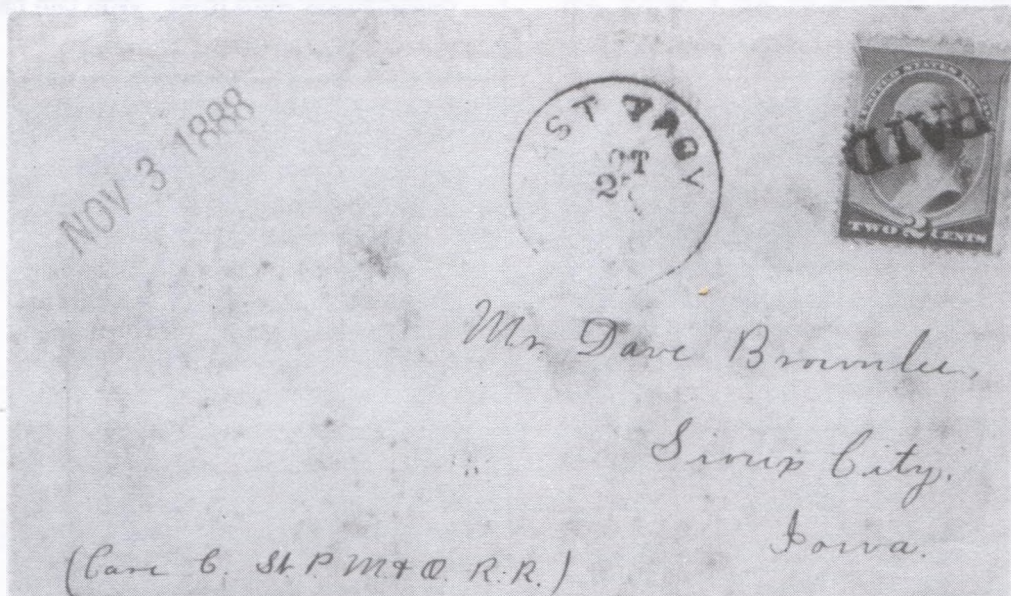 NOV 3 1888
ST TROY
OT
2
UNITED STATES
PAID
TWO 2 CENTS
Mr. Dave Brownlee,
Sioux City.
Iowa.
(Care C. St. P. M. & O. R. R.)